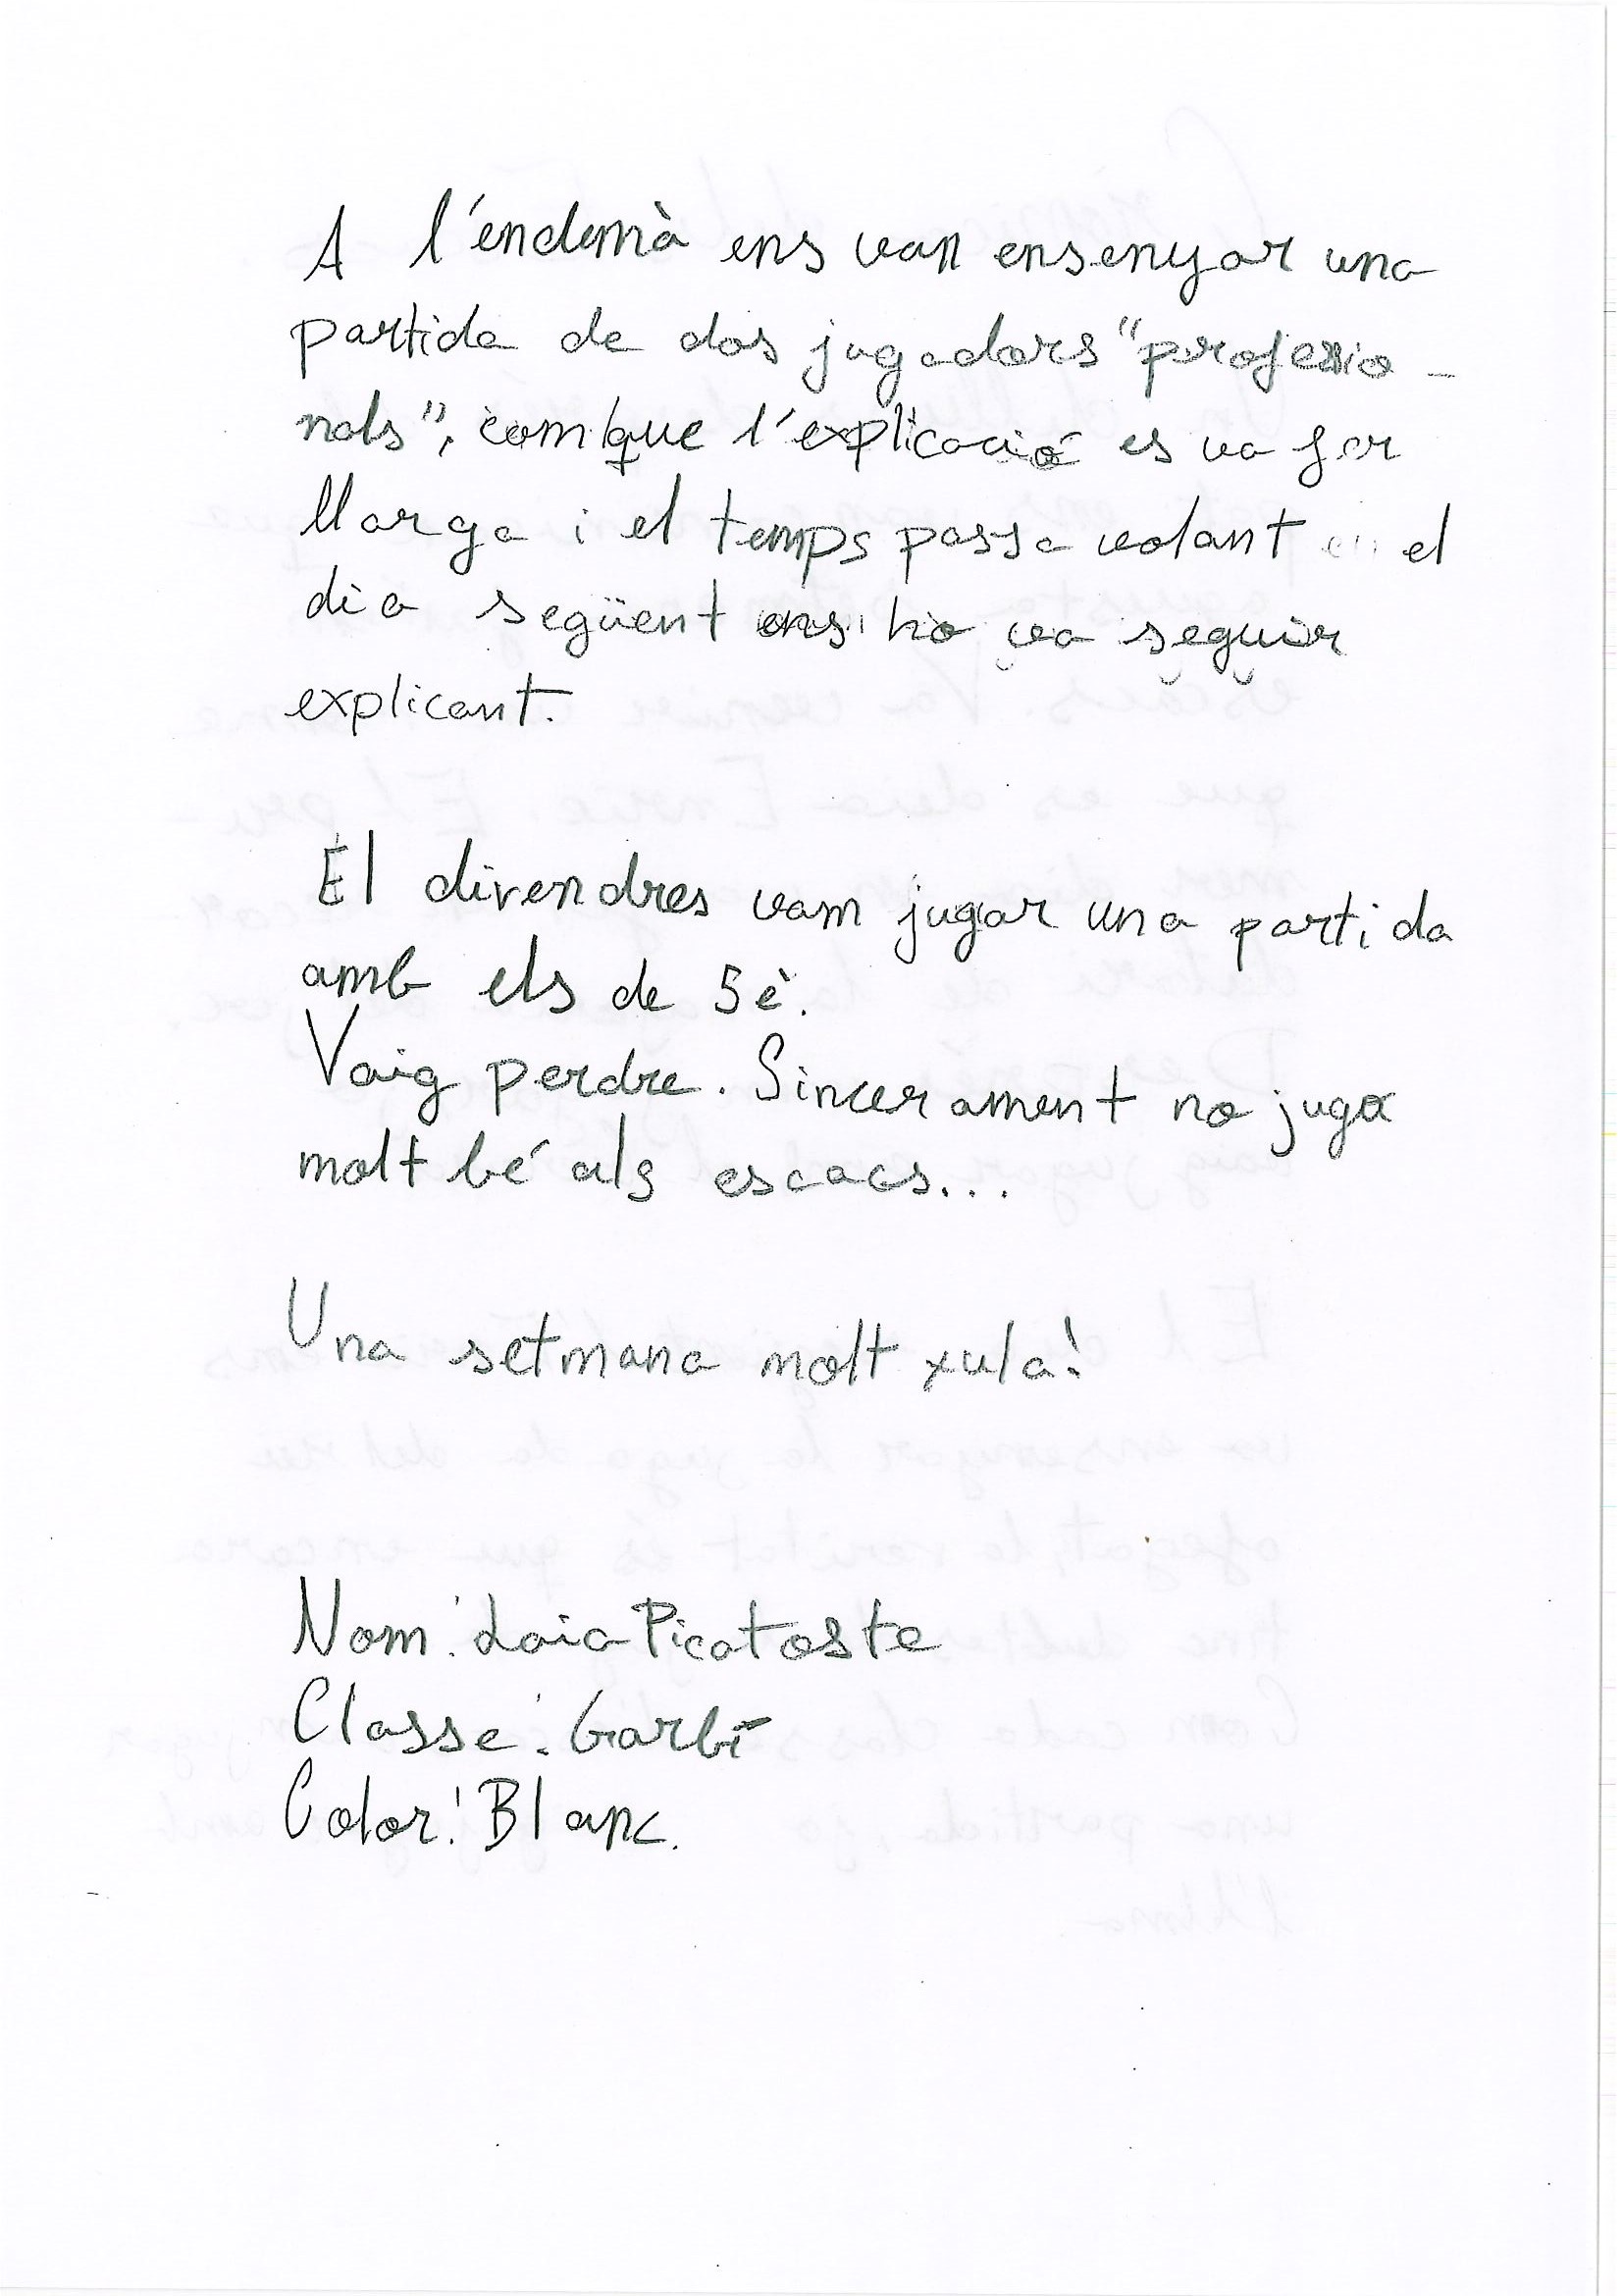 A l'endemà ens van ensenyar una
partida de dos jugadors "professio-
nals", com que l'explicació es va fer
llarga i el temps passa volant el
dia següent ens ho va seguir
explicant.
El divendres vam jugar una partida
amb els de 5è.
Vaig perdre. Sincerament no juga
molt bé als escacs...
Una setmana molt xula!
Nom: Laia Picatoste
Classe: Garbí
Color: Blanc.